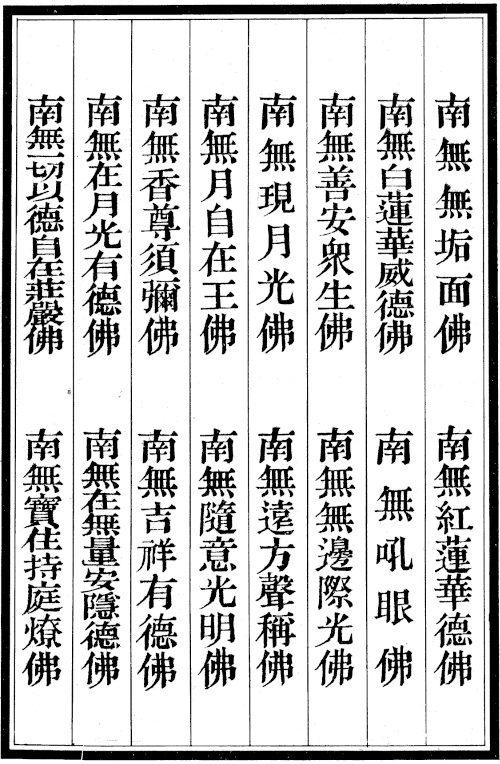 南無無垢面佛
南無紅蓮華德佛
南無白蓮華威德佛
南無吼眼佛
南無善安衆生佛
南無無邊際光佛
南無現月光佛
南無遠方聲稱佛
南無月自在王佛
南無隨意光明佛
南無香尊須彌佛
南無吉祥有德佛
南無在月光有德佛
南無在無量安隱德佛
南無一切以德自在莊嚴佛
南無寶住持庭燎佛